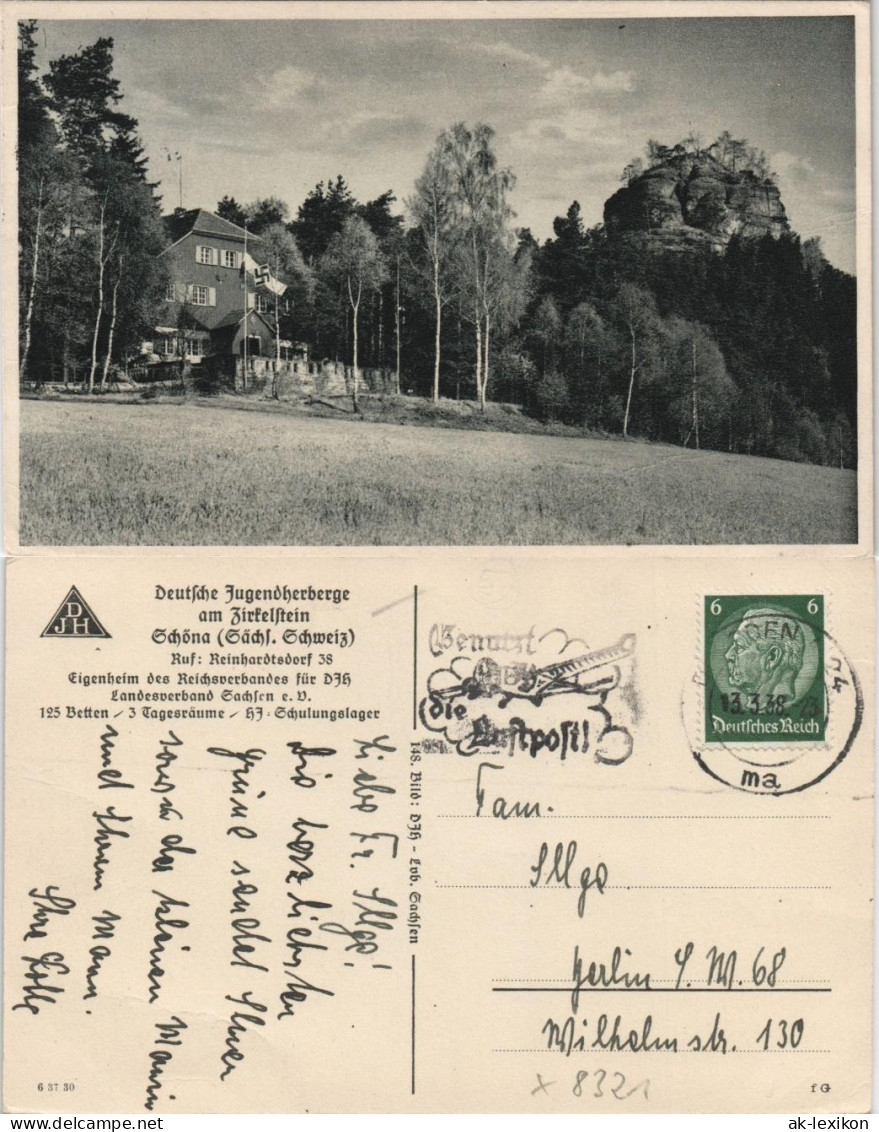 DJH
Deutsche Jugendherberge
am Zirkelstein
Schöna (Sächs. Schweiz)
Ruf: Reinhardtsdorf 38
Eigenheim des Reichsverbandes für DJH
Landesverband Sachsen e. V.
125 Betten / 3 Tagesräume / HJ-Schulungslager
Liebe Fr. Illgo!
Die herzlichsten
Grüße sendet Ihnen
sowie der kleinen
und Ihrem Mann.
Ihre
6 37 30
148. Bild: DJH - Lvb. Sachsen
Benutzt
die
Luftpost!
6 6
Deutsches Reich
DRESDEN
13.3.38
24
Fam.
Illgo
Berlin S.W. 68
Wilhelmstr. 130
x 8321
f G
ak-lexikon